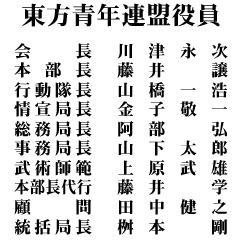 東方青年連盟役員
会長 川津永次
本部長 藤井譲
行動隊長 山橋一浩
情宣局長 金子敬一
総務局長 阿部弘
事務局長 山下太郎
武術師範 上原武雄
本部長代行 藤井学
顧問 田中健之
統括局長 桝本剛